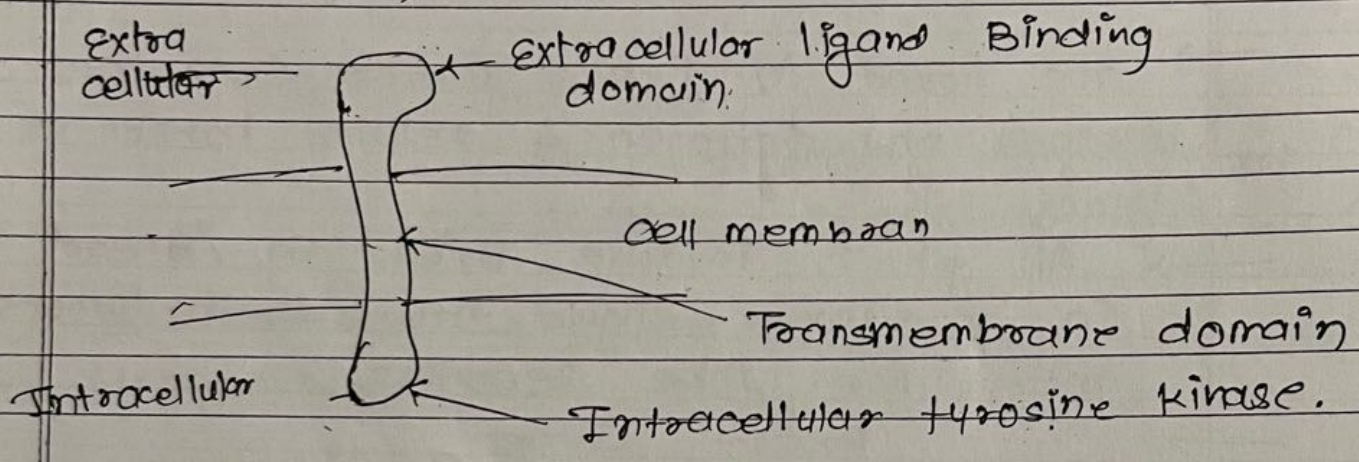 Extra
cellular
Extracellular ligand Binding
domain.
Cell membran
Transmembrane domain
Intracellular
Intracellular tyrosine kinase.